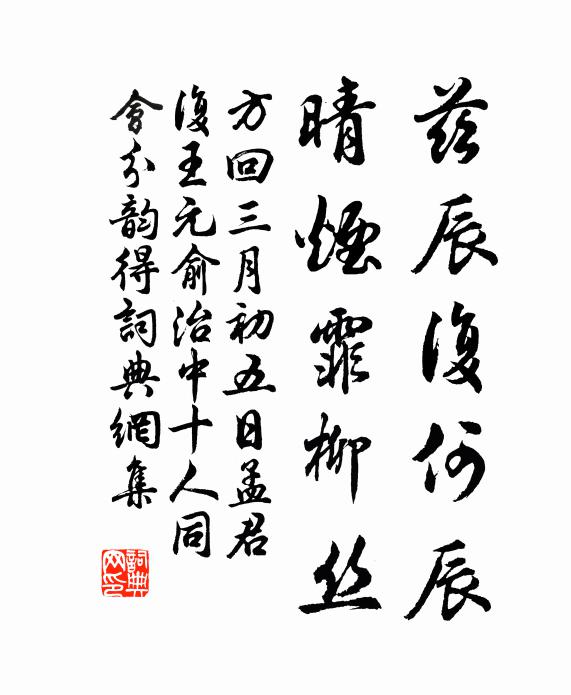 茲辰復何辰
晴煙霏柳丝
方回三月初五日孟君
復王元俞治中十人同
會分韵得詞典網集
詞典
网印